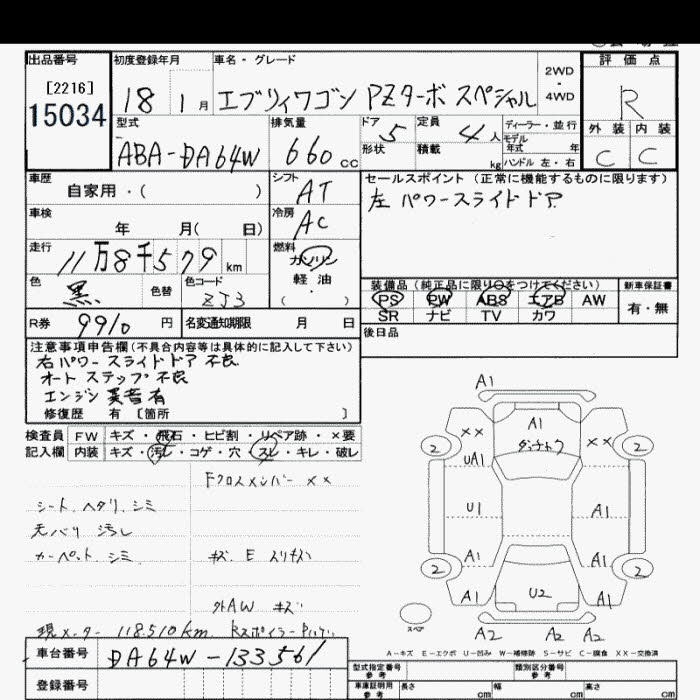 出品番号 初度登録年月 車名・グレード 評価点
[2216]
15034
18 1月 エブリィワゴン PZターボ スペシャル
2WD
4WD
R
型式 排気量 ドア 定員 ディーラー・並行
ABA-DA64W 660cc 5 4人
モデル年式 年
外装 内装
形状 積載 kg ハンドル 左・右
C C
車歴 シフト セールスポイント(正常に機能するものに限ります)
自家用・( ) AT
左パワースライドドア
車検 冷房
年 月( 日) AC
走行 燃料
11万8千579km ガソリン
軽油
( )
色 色替 色コード
黒 ZJ3
装備品(純正品に限り○をつけてください) 新車保証書
PS PW ABS エアB AW
SR ナビ TV カワ
有・無
R券 9910円 名変通知期限 月 日
後日品
注意事項申告欄(不具合内容等は具体的に記入して下さい)
右パワースライドドア不良
オートステップ不良
エンジン異音有
修復歴 有 [箇所 ]
検査員 FW キズ・飛石・ヒビ割・リペア跡・×要
記入欄 内装 キズ・汚れ・コゲ・穴・スレ・キレ・破レ
Fクロスメンバー ××
シート、ヘタリ、シミ
天バリ 汚レ
カーペット、シミ
キズ、E スリキズ
外AW キズ
現メーター 118510km
車台番号 DA64W-133561
登録番号
A1
×× A1 ××
2 2
UA1
U1 A1
A1 A1
2 2
A1 U2 A1
スペア
A2 A2 A2
A-キズ E-エクボ U-凹み W-補修跡 S-サビ C-腐食 ××-交換済
型式指定番号 類別区分番号
参考 参考
車庫証明用 長さ 幅 高さ
参考 cm cm cm